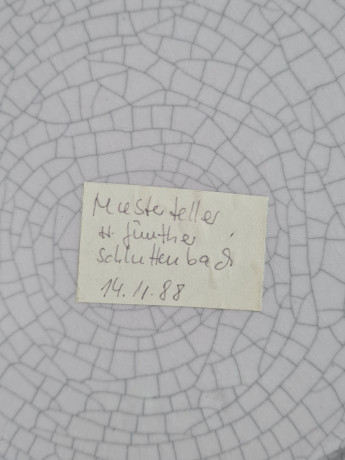 Musterteller
H. Günther
Schluttenbach
14.11.88